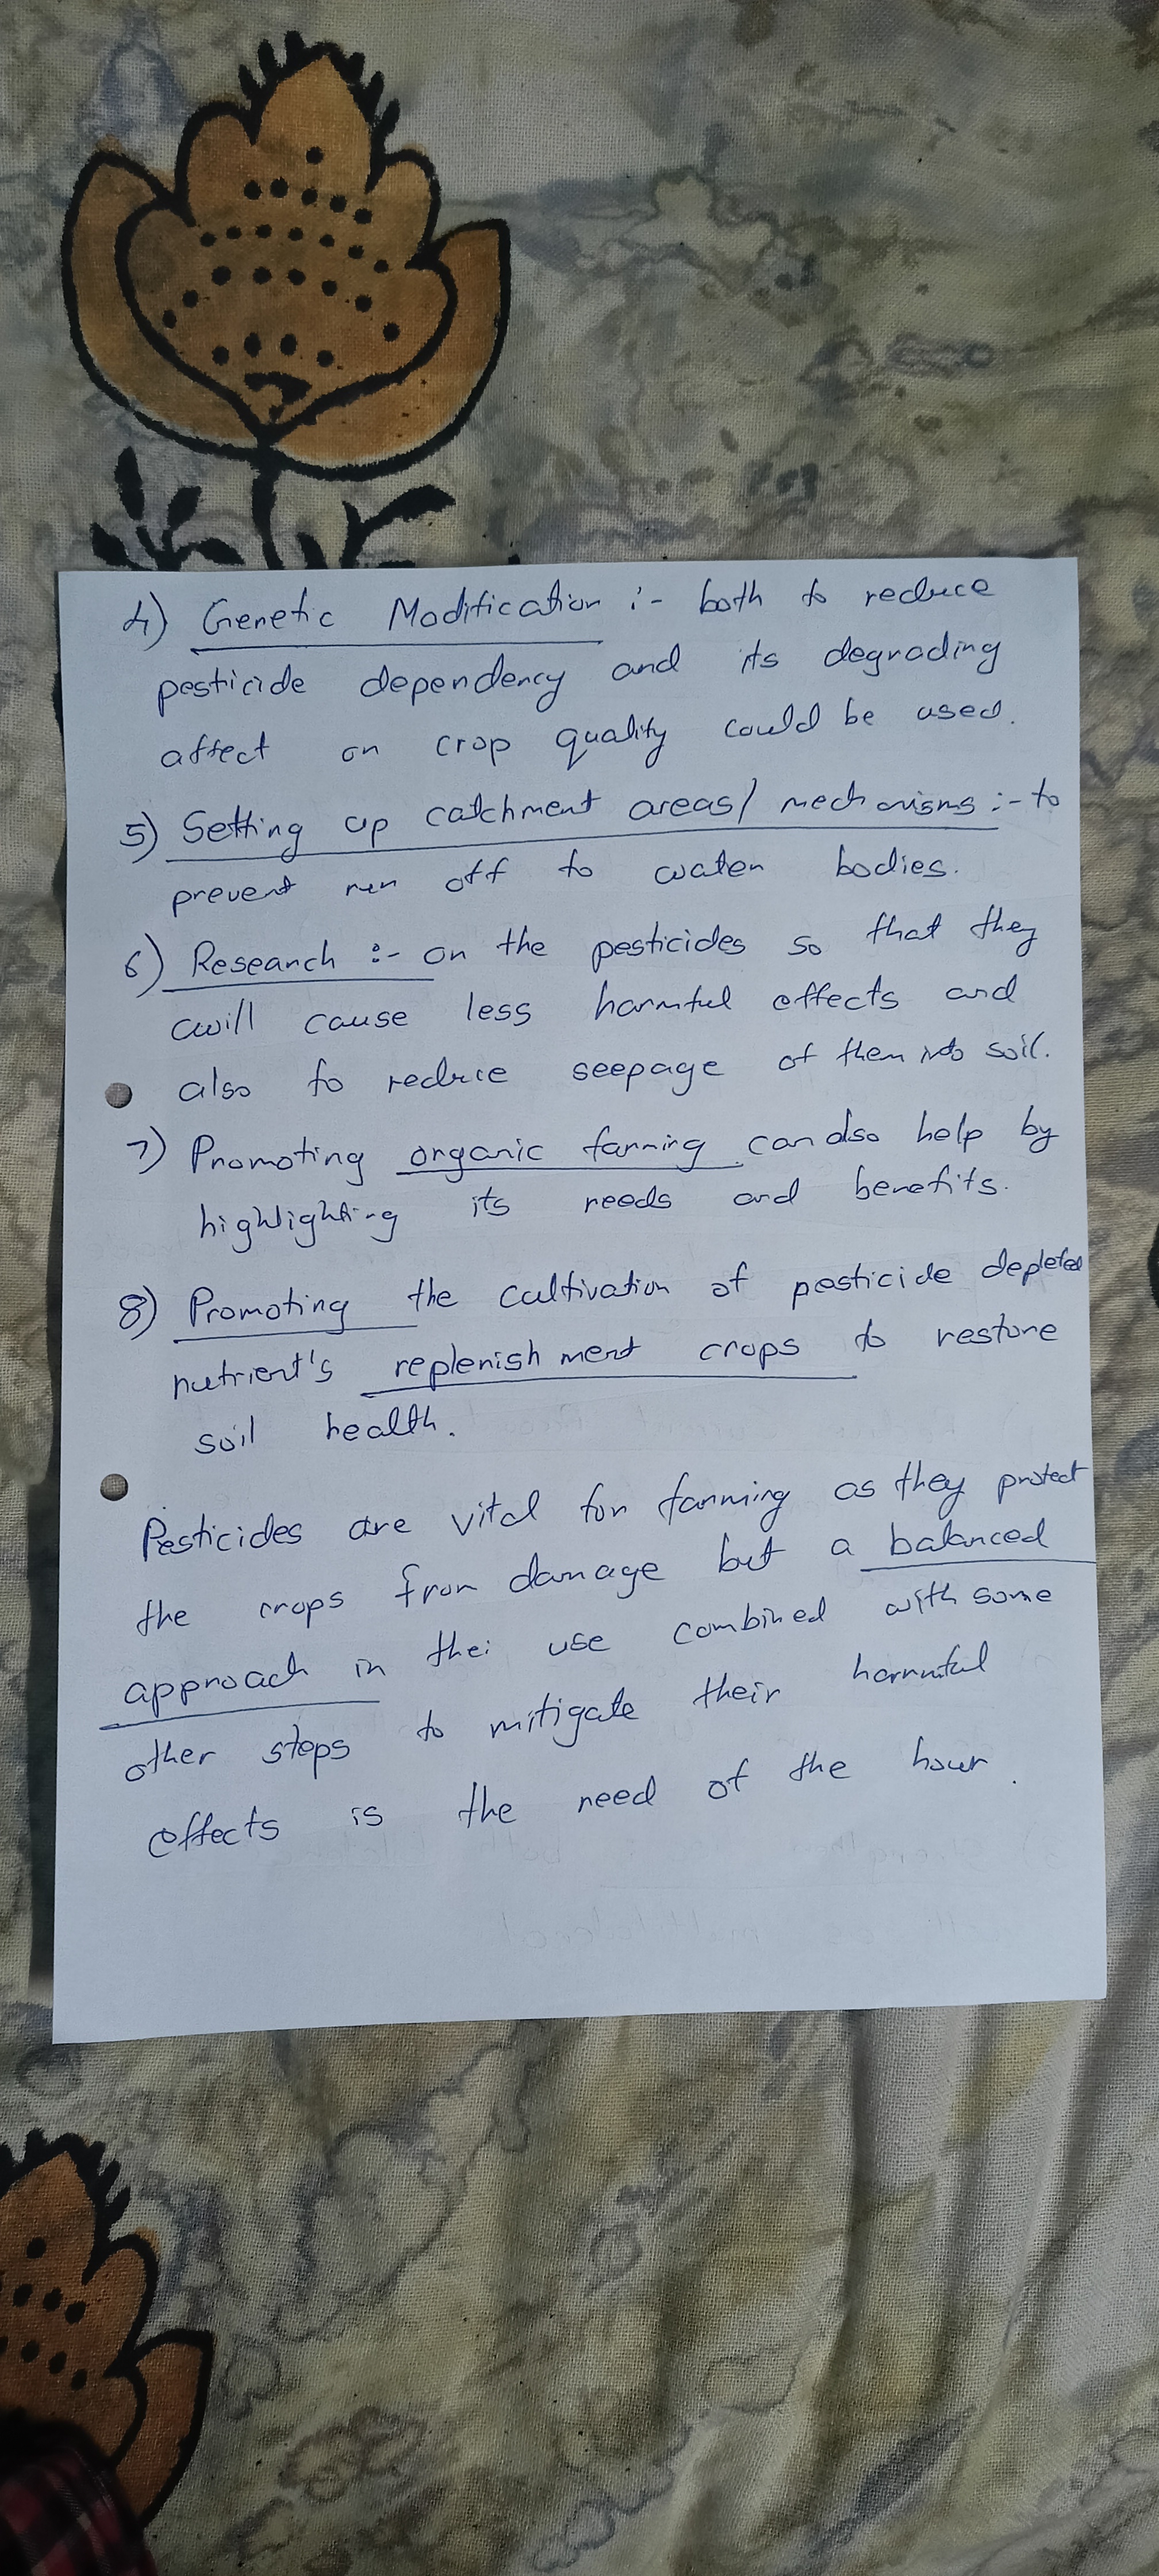 4) Genetic Modification :- both to reduce
pesticide dependency and its degrading
affect on crop quality could be used.
5) Setting up catchment areas/ mechanisms :- to
prevent run off to water bodies.
6) Research :- on the pesticides so that they
will cause less harmful effects and
also to reduce seepage of them into soil.
7) Promoting organic farming can also help by
highlighting its needs and benefits.
8) Promoting the cultivation of pesticide depleted
nutrient's replenishment crops to restore
soil health.
Pesticides are vital for farming as they protect
the crops from damage but a balanced
approach in thei use combined with some
other steps to mitigate their harmful
effects is the need of the hour.